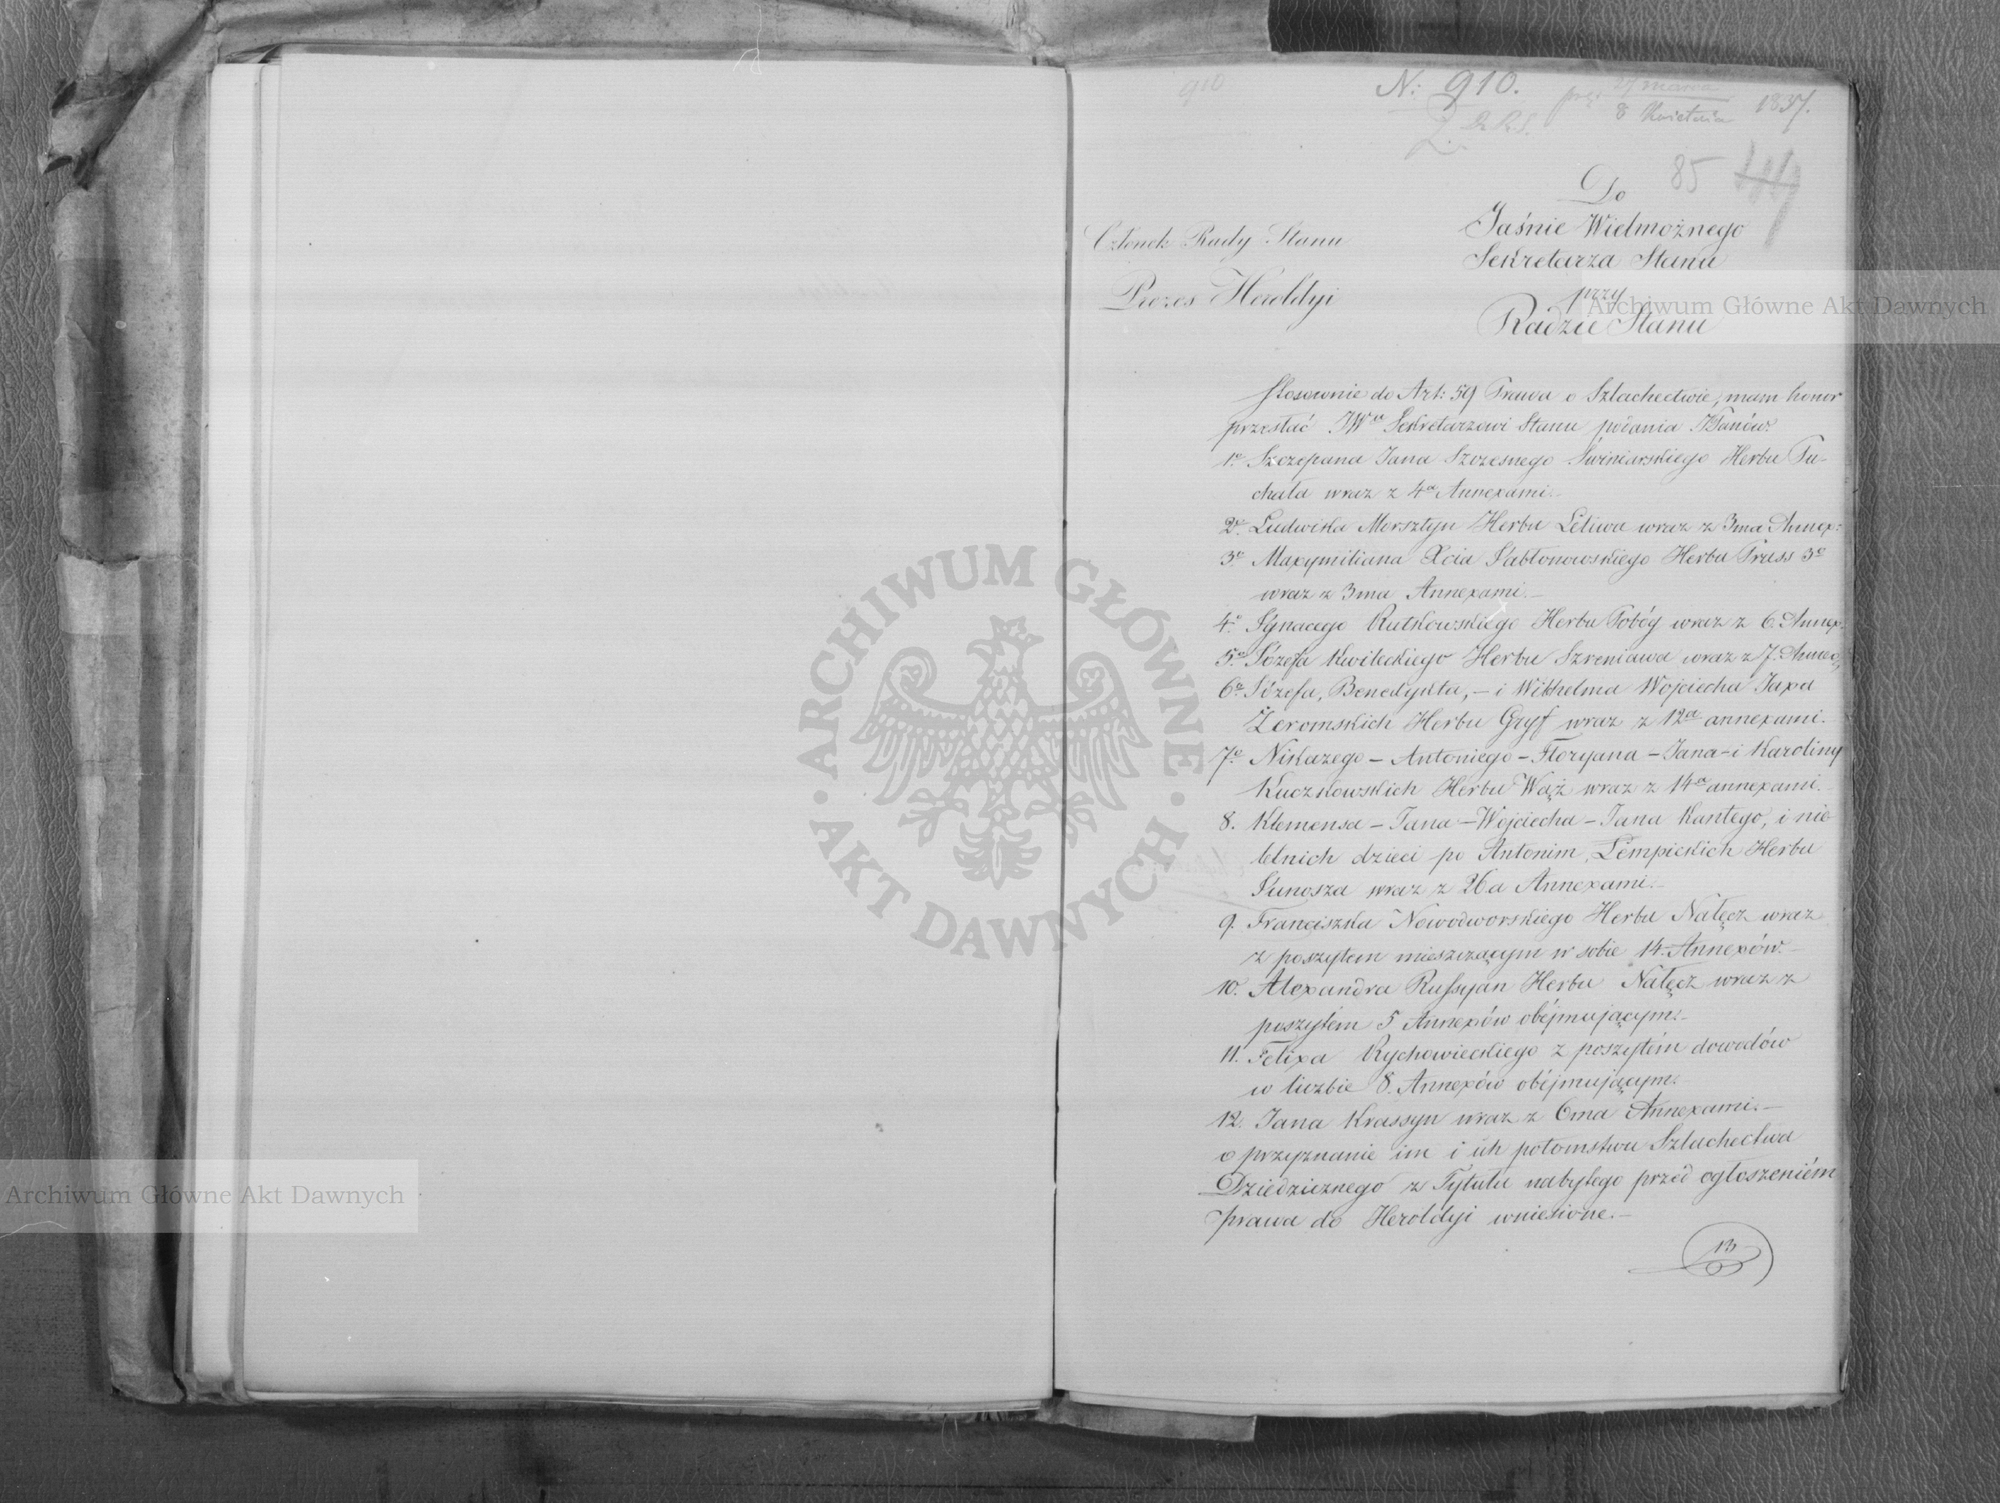 910
N: 910.
8 Kwietnia 1837.
85
Do
Jaśnie Wielmożnego
Sekretarza Stanu
przy
Radzie Stanu
Członek Rady Stanu
Prezes Heroldyi
Stosownie do Art: 59 Prawa o Szlachectwie, mam honor
przesłać JWu Sekretarzowi Stanu podania JPanów.
1o Szczepana Jana Szczesnego Świniarskiego Herbu Pu-
chała wraz z 4a Annexami.
2o Ludwika Morsztyn Herbu Leliwa wraz z 3ma Annex:
3o Maxymiliana Xcia Jabłonowskiego Herbu Pruss 3o
wraz z 3ma Annexami.
4o Ignacego Rutkowskiego Herbu Pobóg wraz z 6. Annex.
5o Józefa Kwileckiego Herbu Szreniawa wraz z 7. Annex,
6o Józefa, Benedykta, – i Wilhelma Wojciecha Jaxa
Żeromskich Herbu Gryf wraz z 12a annexami.
7o Nikazego – Antoniego – Floryana – Jana – i Karoliny
Kuczkowskich Herbu Wąż wraz z 14a annexami.
8. Klemensa – Jana – Wojciecha – Jana Kantego, i nie
letnich dzieci po Antonim, Lempickich Herbu
Junosza wraz z 26a Annexami.
9. Franciszka Nowodworskiego Herbu Nałęcz wraz
z poszytem mieszczącym w sobie 14. Annexów.
10. Alexandra Russyan Herbu Nałęcz wraz z
poszytem 5 Annexów obéjmującym.
11. Felixa Rychowieckiego z poszytem dowodów
w liczbie 8. Annexów obéjmującym.
12. Jana Krassyn wraz z 6ma Annexami.
o przyznanie im i ich potomstwu Szlachectwa
Dziedzicznego z Tytułu nabytego przed ogłoszeniém
prawa do Heroldyi wniesione.
Archiwum Główne Akt Dawnych
Archiwum Główne Akt Dawnych
ARCHIWUM GŁÓWNE · AKT DAWNYCH ·